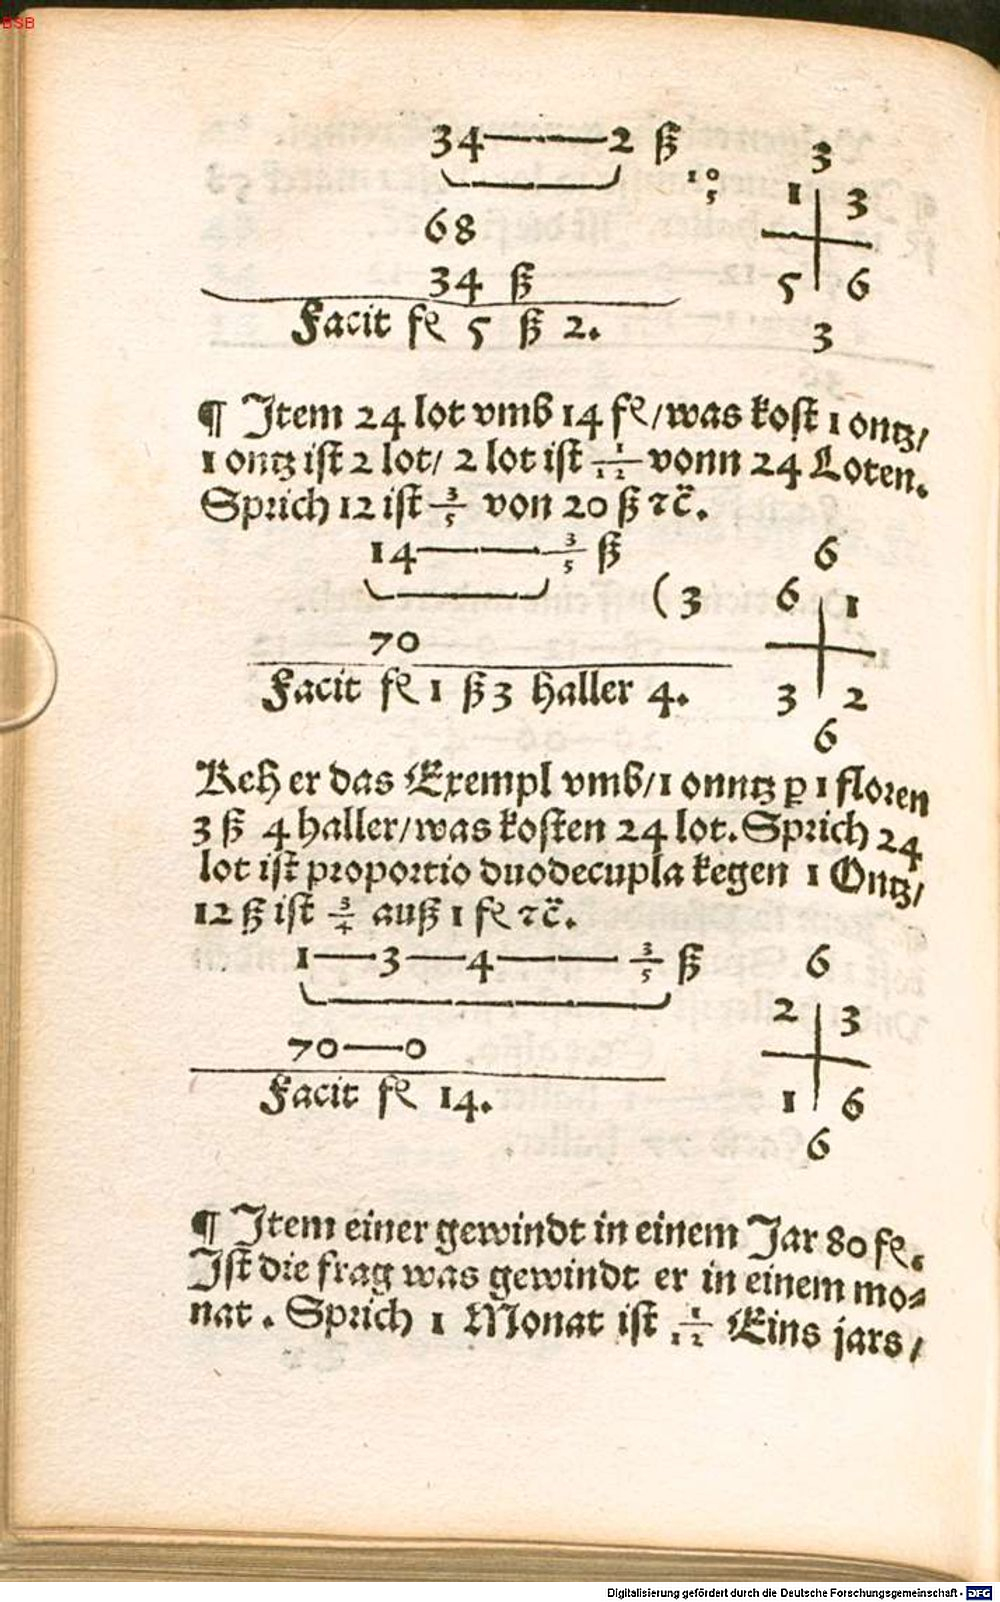 BSB
34 — 2 ß
10/5
68
34 ß
Facit fl 5 ß 2.
3
1 3
5 6
3
¶ Item 24 lot vmb 14 fl/was kost 1 ontz/
1 ontz ist 2 lot/ 2 lot ist 1/12 vonn 24 Loten.
Sprich 12 ist 3/5 von 20 ß ⁊c̈.
14 — — 3/5 ß
(3
70
Facit fl 1 ß 3 haller 4.
6
6 1
3 2
6
Keh er das Exempl vmb/1 onntz ꝑ 1 floren
3 ß 4 haller/was kosten 24 lot. Sprich 24
lot ist proportio duodecupla kegen 1 Ontz/
12 ß ist 3/4 auß 1 fl ⁊c̈.
1 — 3 — 4 — — 3/5 ß
70 — 0
Facit fl 14.
6
2 3
1 6
6
¶ Item einer gewindt in einem Jar 80 fl.
Ist die frag was gewindt er in einem mo⸗
nat . Sprich 1 Monat ist 1/12 Eins jars /
Digitalisierung gefördert durch die Deutsche Forschungsgemeinschaft - DFG